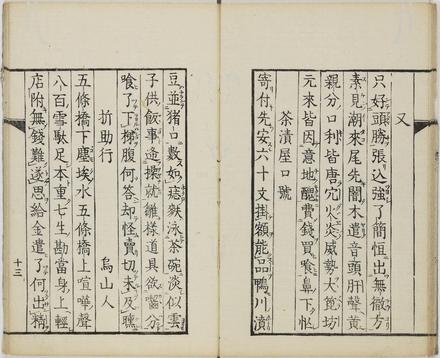 又
只好頭勝張込強了簡恒出無徵方
素見潮來尾先闇木遣音頭肝聲黄
親分口利皆唐穴火炎威勢大箆坊
元來皆因意地醜費錢買喰鼻下
茶漬屋口號
寄付先安六十文掛額能品鴨川漬
豆並猪口數如痣麩泳茶碗淡似雲
子供飯事造據就雛樣道具欲
喰了下梯腹何答却怪賣切未及
折助行
烏山人
五條橋下塵埃水五條橋上喧嘩聲
八百雪駄足本重七生勘當身上輕
店附無錢難遂思給金遣了何出精
十三